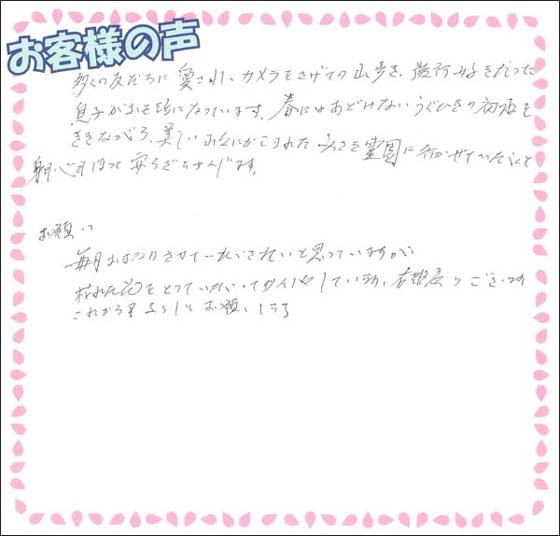 お客様の声
多くの友だちに愛され、カメラをさげての山歩き、旅行好きだった
息子がお世話になっています。春にはあどけないうぐいすの初音を
ききながら、美しい山なみにかこまれたみさき霊園に行かせていただくと
身心ほっと安らぎをかんじます。
お願い
毎月おまいりさせていただきたいと思っていますが
枯れた花をとっていただいてかんしゃしています。有難うございます
これからもよろしくお願いします